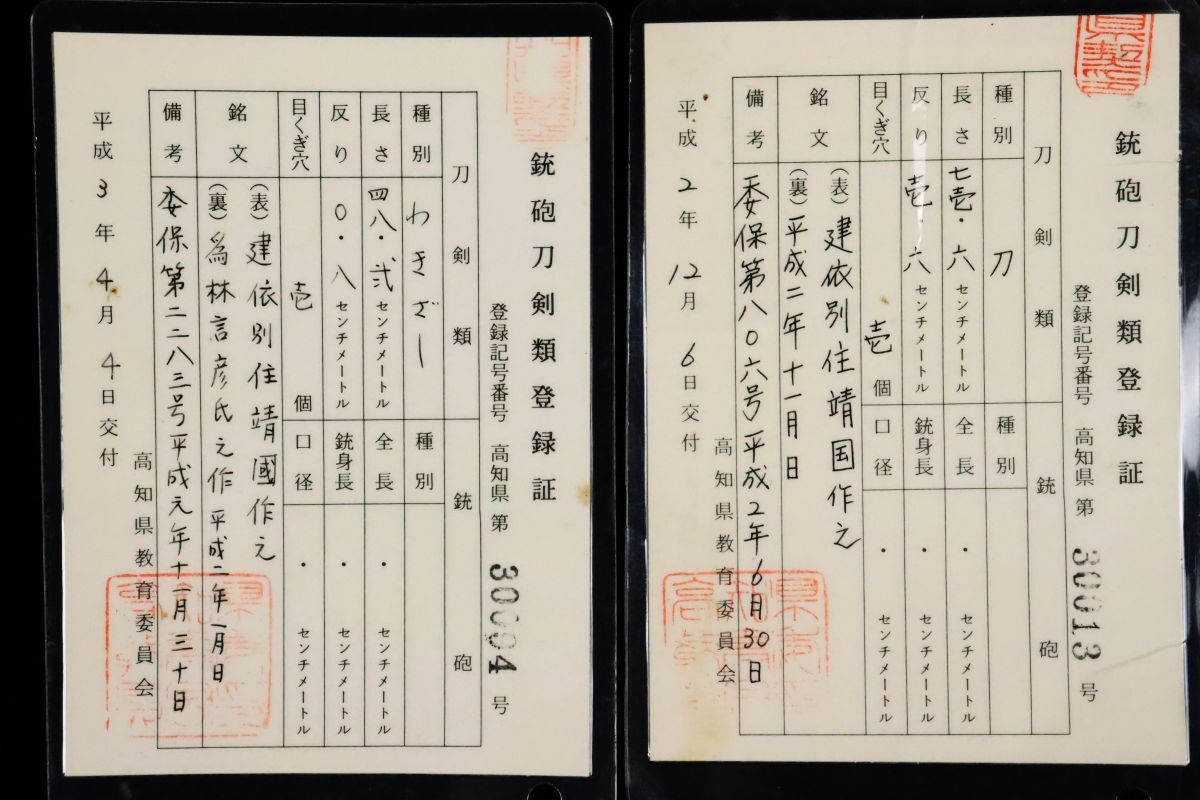 銃砲刀剣類登録証
登録記号番号 高知県 第 30004 号
刀剣類 銃砲
種別 わきざし 種別
長さ 四八・弐 センチメートル 全長 ・ センチメートル
反り 0・八 センチメートル 銃身長 ・ センチメートル
目くぎ穴 壱 個 口径 ・ センチメートル
銘文 (表)建依別住靖國作之
(裏)為林言彦氏之作 平成二年一月日
備考 委保第二二八三号平成元年十一月三十日
高知県教育委員会
平成 3 年 4 月 4 日交付
銃砲刀剣類登録証
登録記号番号 高知県 第 30013 号
刀剣類 銃砲
種別 刀 種別
長さ 七壱・六 センチメートル 全長 ・ センチメートル
反り 壱・六 センチメートル 銃身長 ・ センチメートル
目くぎ穴 壱 個 口径 ・ センチメートル
銘文 (表)建依別住靖国作之
(裏)平成二年十一月日
備考 委保第八0六号平成2年6月30日
高知県教育委員会
平成 2 年 12 月 6 日交付